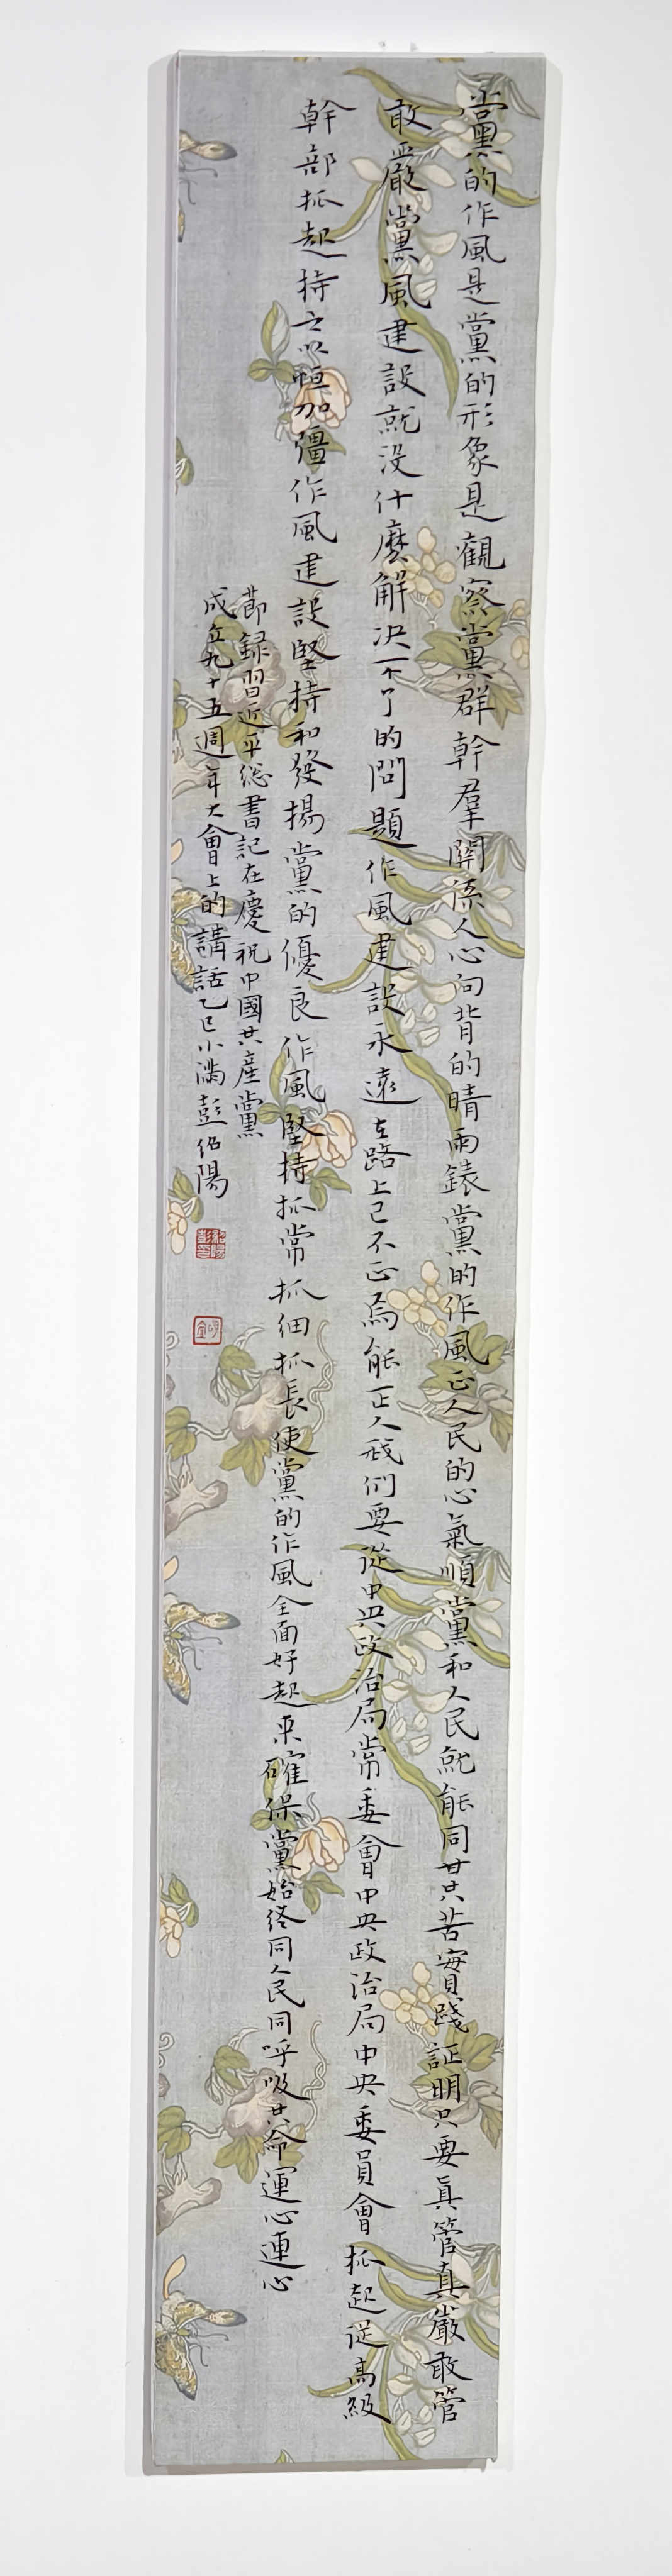 黨的作風是黨的形象是觀察黨群幹羣關係人心向背的晴雨錶黨的作風正人民的心氣順黨和人民就能同甘共苦實踐証明只要真管真嚴敢管
敢嚴黨風建設就没什麽解决不了的問題作風建設永遠在路上己不正焉能正人我們要從中央政治局常委會中央政治局中央委員會抓起從高級
幹部抓起持之以恒加彊作風建設堅持和發揚黨的優良作風堅持抓常抓細抓長使黨的作風全面好起来確保黨始終同人民同呼吸共命運心連心
節録習近平總書記在慶祝中國共産黨
成立九十五週年大會上的講話乙巳小滿彭紹陽